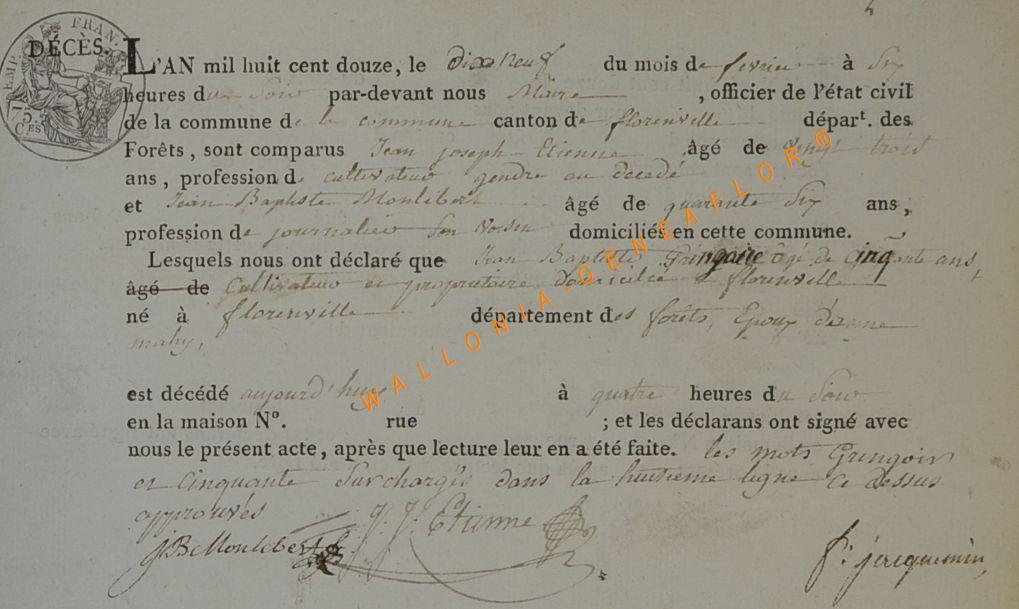 DÉCÈS.
EMP. FRAN.
75. CES
L'AN mil huit cent douze, le dix neuf du mois de fevrier à Six
heures du Soir par-devant nous Maire , officier de l'état civil
de la commune de la commune canton de florenville départ. des
Forêts, sont comparus Jean joseph Etienne âgé de vingt trois
ans, profession de cultivateur gendre au decedé
et Jean Baptiste Monlibert âgé de quarante Six ans,
profession de journalier Son Voisin domiciliés en cette commune.
Lesquels nous ont déclaré que Jean Baptiste Gringoire âgé de Cinquante ans,
âgé de Cultivateur et propriétaire domicilié a florenville
né à florenville département des forêts, Epoux d'anne
mahy,
est décédé aujourd'huy à quatre heures du Soir
en la maison N°. rue ; et les déclarans ont signé avec
nous le présent acte, après que lecture leur en a été faite. les mots Gringoire
et Cinquante Surchargés dans la huitieme ligne Ci dessus
approuvés J. J. Etienne
JB Monlibert f. jacquemin
WALLONIA-GENEAFLOR®